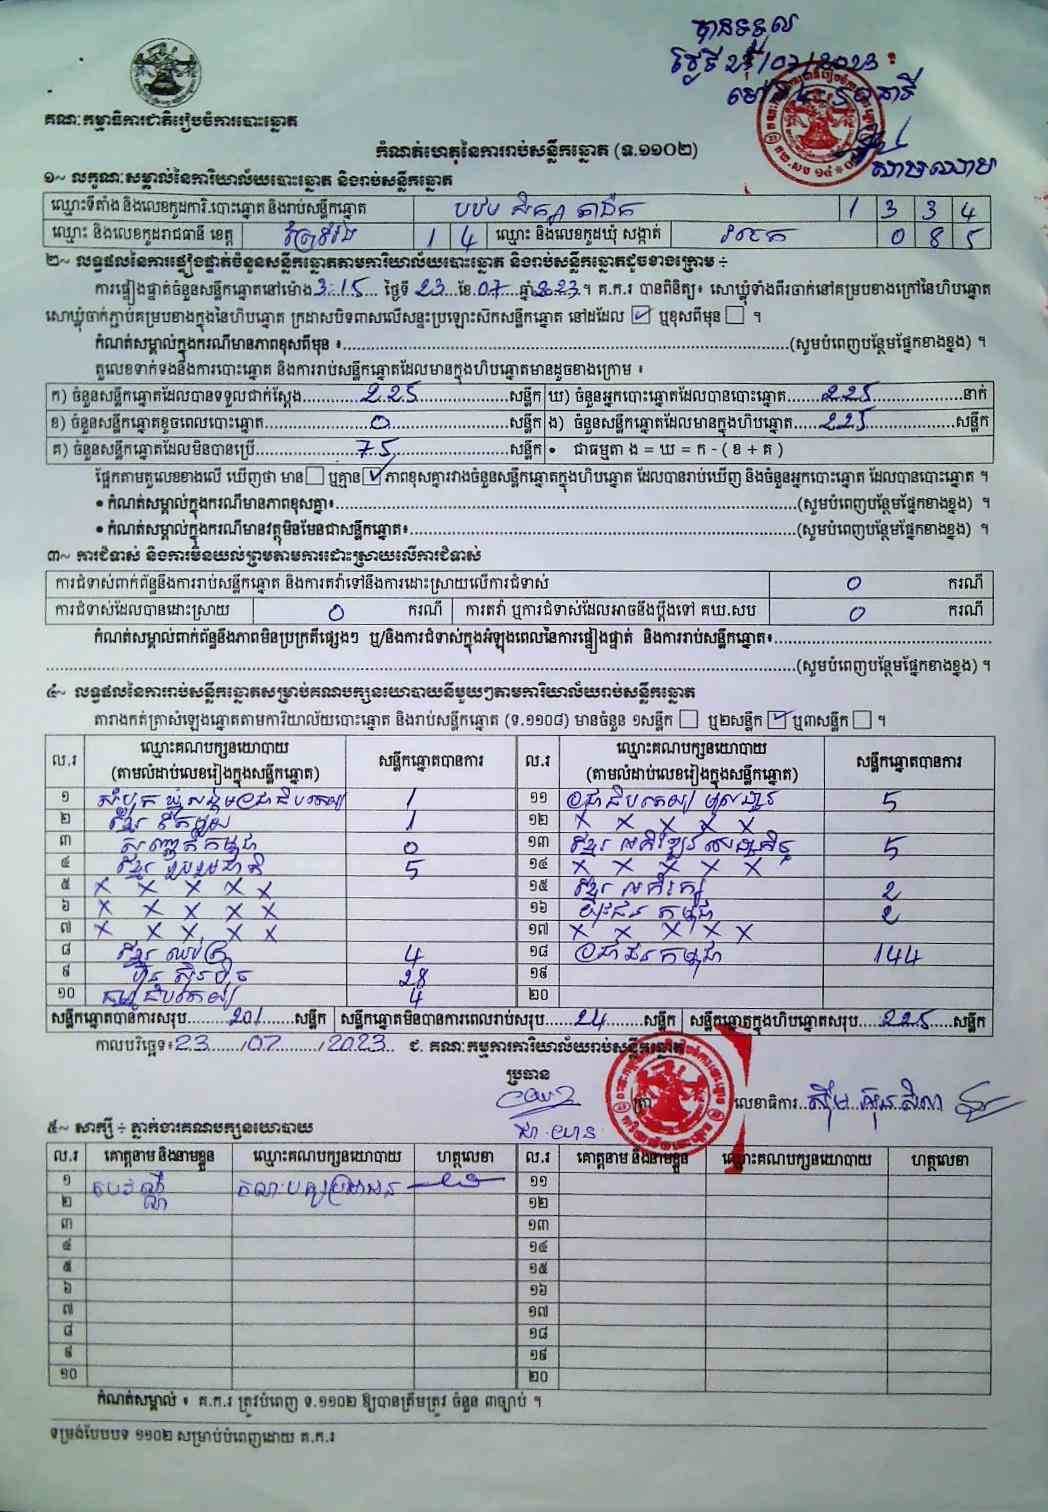 បានទទួល
ថ្ងៃទី 23/07/2023
ម៉ោង
គណៈកម្មាធិការជាតិរៀបចំការបោះឆ្នោត
កំណត់ហេតុនៃការរាប់សន្លឹកឆ្នោត (ទ.១១០២)
១~ លក្ខណៈសម្គាល់នៃការិយាល័យបោះឆ្នោត និងរាប់សន្លឹកឆ្នោត
ឈ្មោះទីតាំង និងលេខកូដការិ.បោះឆ្នោត និងរាប់សន្លឹកឆ្នោត 1 3 3 4
ឈ្មោះ និងលេខកូដរាជធានី ខេត្ត ព្រៃវែង 1 4 ឈ្មោះ និងលេខកូដឃុំ សង្កាត់ 0 8 5
២~ លទ្ធផលនៃការផ្ទៀងផ្ទាត់ចំនួនសន្លឹកឆ្នោតតាមការិយាល័យបោះឆ្នោត និងរាប់សន្លឹកឆ្នោតដូចខាងក្រោម ÷
ការផ្ទៀងផ្ទាត់ចំនួនសន្លឹកឆ្នោតនៅម៉ោង 3:15 ថ្ងៃទី 23 ខែ 07 ឆ្នាំ 2023 ។ គ.ក.រ បានពិនិត្យ៖ សោឃ្លុំទាំងពីរចាក់នៅគម្របខាងក្រៅនៃហិបឆ្នោត
សោឃ្លុំចាក់ភ្ជាប់គម្របខាងក្នុងនៃហិបឆ្នោត ក្រដាសបិទពាសលើសន្ទះប្រឡោះស៊កសន្លឹកឆ្នោត នៅដដែល ✓ ឬខុសពីមុន ។
កំណត់សម្គាល់ក្នុងករណីមានភាពខុសពីមុន ៖ (សូមបំពេញបន្ថែមផ្នែកខាងខ្នង) ។
តួលេខទាក់ទងនឹងការបោះឆ្នោត និងការរាប់សន្លឹកឆ្នោតដែលមានក្នុងហិបឆ្នោតមានដូចខាងក្រោម ៖
ក) ចំនួនសន្លឹកឆ្នោតដែលបានទទួលជាក់ស្តែង 225 សន្លឹក ឃ) ចំនួនអ្នកបោះឆ្នោតដែលបានបោះឆ្នោត 225 នាក់
ខ) ចំនួនសន្លឹកឆ្នោតខូចពេលបោះឆ្នោត 0 សន្លឹក ង) ចំនួនសន្លឹកឆ្នោតដែលមានក្នុងហិបឆ្នោត 225 សន្លឹក
គ) ចំនួនសន្លឹកឆ្នោតដែលមិនបានប្រើ 75 សន្លឹក • ជាធម្មតា ង = ឃ = ក - ( ខ + គ )
ផ្អែកតាមតួលេខខាងលើ ឃើញថា មាន ឬគ្មាន ✓ ភាពខុសគ្នារវាងចំនួនសន្លឹកឆ្នោតក្នុងហិបឆ្នោត ដែលបានរាប់ឃើញ និងចំនួនអ្នកបោះឆ្នោត ដែលបានបោះឆ្នោត ។
• កំណត់សម្គាល់ក្នុងករណីមានភាពខុសគ្នា៖ (សូមបំពេញបន្ថែមផ្នែកខាងខ្នង) ។
• កំណត់សម្គាល់ក្នុងករណីមានវត្ថុមិនមែនជាសន្លឹកឆ្នោត៖ (សូមបំពេញបន្ថែមផ្នែកខាងខ្នង) ។
៣~ ការជំទាស់ និងការមិនយល់ព្រមតាមការដោះស្រាយលើការជំទាស់
ការជំទាស់ពាក់ព័ន្ធនឹងការរាប់សន្លឹកឆ្នោត និងការតវ៉ាទៅនឹងការដោះស្រាយលើការជំទាស់ 0 ករណី
ការជំទាស់ដែលបានដោះស្រាយ 0 ករណី ការតវ៉ា ឬការជំទាស់ដែលអាចនឹងប្តឹងទៅ គឃ.សប 0 ករណី
កំណត់សម្គាល់ពាក់ព័ន្ធនឹងភាពមិនប្រក្រតីផ្សេងៗ ឬ/និងការជំទាស់ក្នុងអំឡុងពេលនៃការផ្ទៀងផ្ទាត់ និងការរាប់សន្លឹកឆ្នោត៖
(សូមបំពេញបន្ថែមផ្នែកខាងខ្នង) ។
៤~ លទ្ធផលនៃការរាប់សន្លឹកឆ្នោតសម្រាប់គណបក្សនយោបាយនីមួយៗតាមការិយាល័យរាប់សន្លឹកឆ្នោត
តារាងកត់ត្រាសំឡេងឆ្នោតតាមការិយាល័យបោះឆ្នោត និងរាប់សន្លឹកឆ្នោត (ទ.១១០៨) មានចំនួន ១សន្លឹក ឬ២សន្លឹក ✓ ឬ៣សន្លឹក ។
ល.រ ឈ្មោះគណបក្សនយោបាយ (តាមលំដាប់លេខរៀងក្នុងសន្លឹកឆ្នោត) សន្លឹកឆ្នោតបានការ ល.រ ឈ្មោះគណបក្សនយោបាយ (តាមលំដាប់លេខរៀងក្នុងសន្លឹកឆ្នោត) សន្លឹកឆ្នោតបានការ
១ សំបុកឃ្មុំសង្គមប្រជាធិបតេយ្យ 1 ១១ ប្រជាធិបតេយ្យមូលដ្ឋាន 5
២ ខ្មែររួបរួម 1 ១២ X X X X X
៣ សញ្ជាតិកម្ពុជា 0 ១៣ 5
៤ ខ្មែររួបរួមជាតិ 5 ១៤ X X X X X
៥ X X X X X ១៥ ខ្មែរអភិរក្ស 2
៦ X X X X X ១៦ យុវជនកម្ពុជា 2
៧ X X X X X ១៧ X X X X X
៨ ខ្មែរឈប់ក្រ 4 ១៨ ប្រជាជនកម្ពុជា 144
៩ ហ្វ៊ុនស៊ិនប៉ិច 28 ១៩
១០ 4 ២០
សន្លឹកឆ្នោតបានការសរុប 201 សន្លឹក សន្លឹកឆ្នោតមិនបានការពេលរាប់សរុប 24 សន្លឹក សន្លឹកឆ្នោតក្នុងហិបឆ្នោតសរុប 225 សន្លឹក
កាលបរិច្ឆេទ៖ 23/07/2023 ជ. គណៈកម្មការការិយាល័យរាប់សន្លឹកឆ្នោត
ប្រធាន
ត្រា
លេខាធិការ
៥~ សាក្សី ÷ ភ្នាក់ងារគណបក្សនយោបាយ
ល.រ គោត្តនាម និងនាមខ្លួន ឈ្មោះគណបក្សនយោបាយ ហត្ថលេខា ល.រ គោត្តនាម និងនាមខ្លួន ឈ្មោះគណបក្សនយោបាយ ហត្ថលេខា
១ គណបក្សប្រជាជន ១១
២ ១២
៣ ១៣
៤ ១៤
៥ ១៥
៦ ១៦
៧ ១៧
៨ ១៨
៩ ១៩
១០ ២០
កំណត់សម្គាល់ ៖ គ.ក.រ ត្រូវបំពេញ ទ.១១០២ ឱ្យបានត្រឹមត្រូវ ចំនួន ៣ច្បាប់ ។
ទម្រង់បែបបទ ១១០២ សម្រាប់បំពេញដោយ គ.ក.រ